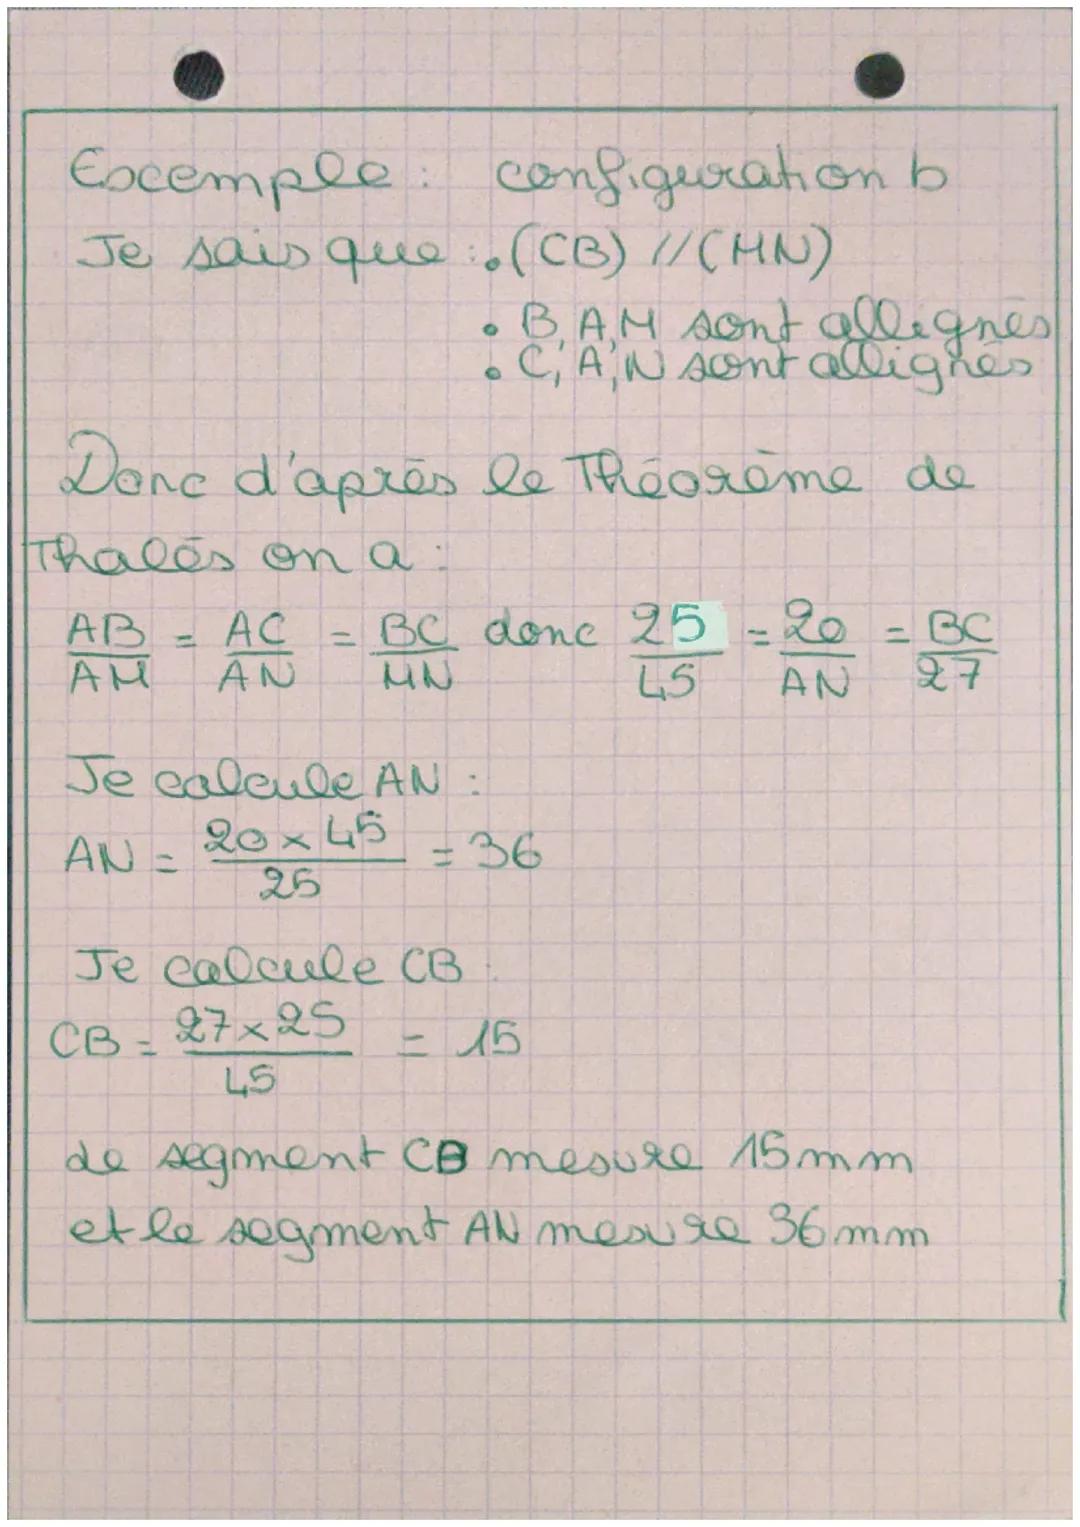 Excemple : configuration b
Je sais que : • (CB) // (MN)
• B, A, M sont allignés
• C, A, N sont allignés
Donc d'après le Théorème de
Thalès on a :
AB/AM = AC/AN = BC/MN donc 25/45 = 20/AN = BC/27
Je calcule AN :
AN = 20 x 45/25 = 36
Je calcule CB :
CB = 27 x 25/45 = 15
Le segment CB mesure 15 mm
et le segment AN mesure 36 mm